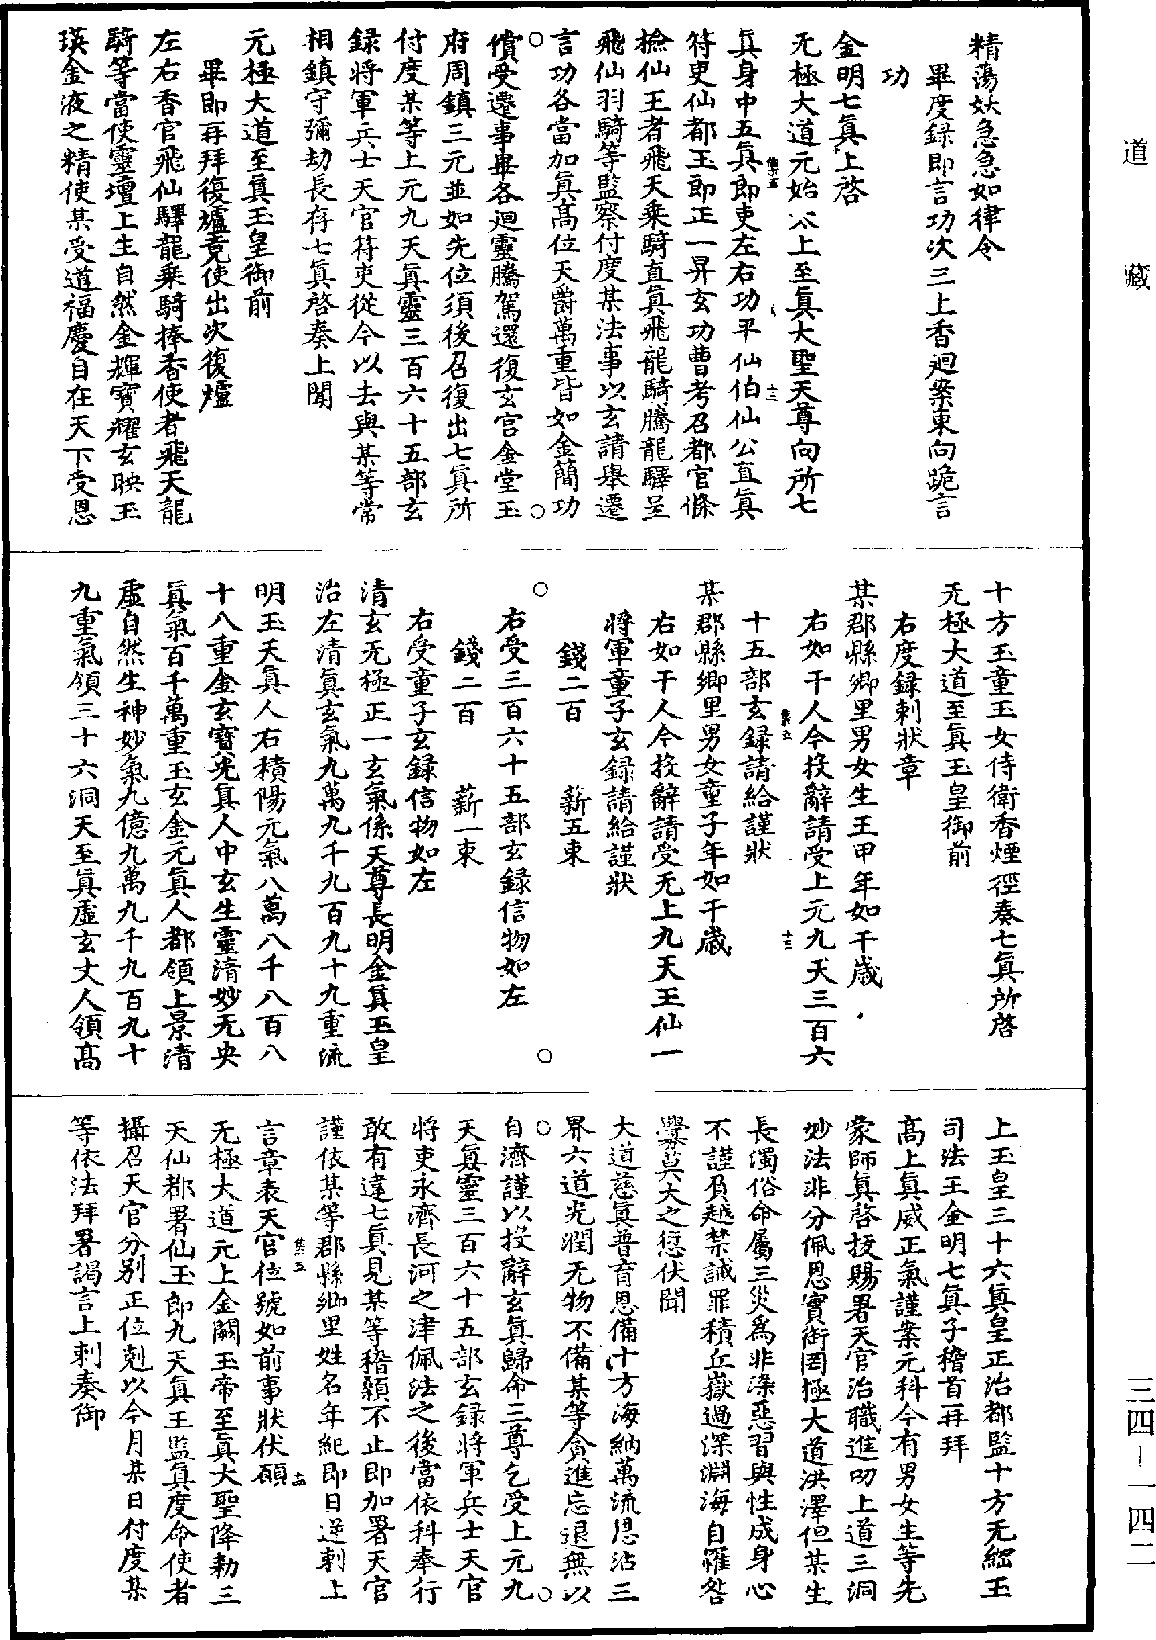 道藏
精蕩妖急急如律令
畢度録即言功次三上香迴案東向跪言
功
金明七真上啓
无極大道元始太上至真大聖天尊向所七
真身中五真即吏左右功平仙伯仙公直真
符吏仙都玉即正一昇玄功曹考召都官條
撿仙王者飛天乗騎直真飛龍騎騰龍驛呈
飛仙羽騎等監察付度某法事以玄請舉遷
言功各當加真髙位天爵萬重皆如金簡功
償受遷事畢各迴靈騰駕還復玄宫金堂玉
府周鎮三元並如先位須後召復出七真所
付度某等上元九天真靈三百六十五部玄
録將軍兵士天官符吏從今以去與某等常
相鎮守彌劫長存七真啓奏上聞
元極大道至真玉皇御前
畢即再拜復爐竟使出次復爐
左右香官飛仙驛龍乗騎捧香使者飛天龍
騎等當使靈壇上生自然金輝寳耀玄映玉
瑛金液之精使某受道福慶自在天下受恩
十方玉童玉女侍衛香煙徑奏七真所啓
无極大道至真玉皇御前
右度録刺狀章
某郡縣鄉里男女生王甲年如干歲
右如干人今投辭請受上元九天三百六
十五部玄録請給謹狀
某郡縣鄉里男女童子年如干歲
右如干人今投辭請受无上九天王仙一
將軍童子玄録請給謹狀
錢二百 薪五束
右受三百六十五部玄録信物如左
錢二百 薪一束
右受童子玄録信物如左
清玄无極正一玄氣係天尊長明金真玉皇
治左清真玄氣九萬九千九百九十九重流
明玉天真人右積陽元氣八萬八千八百八
十八重金玄寳光真人中玄生靈清妙无央
真氣百千萬重玉玄金元真人都領上景清
虛自然生神妙氣九億九萬九千九百九十
九重氣領三十六洞天至真虛玄丈人領髙
上玉皇三十六真皇正治都監十方无緫玉
司法王金明七真子稽首再拜
髙上真威正氣謹案元科今有男女生等先
蒙師真啓授賜署天官治職進叨上道三洞
妙法非分佩恩實銜罔極大道洪澤但某生
長濁俗命屬三災為非染惡習與性成身心
不謹負越禁誡罪積丘嶽過深淵海自罹咎
舋莫大之愆伏聞
大道慈真普育恩備十方海納萬流恩沾三
界六道光潤无物不備某等貪進忘退無以
自濟謹以投辭玄真歸命三尊乞受上元九
天真靈三百六十五部玄録將軍兵士天官
將吏永濟長河之津佩法之後當依科奉行
敢有違七真見某等稽顙不止即加署天官
謹依某等郡縣鄉里姓名年紀即日逆刺上
言章表天官位號如前事狀伏願
无極大道元上金闕玉帝至真大聖降勑三
天仙都署仙玉郎九天真王監真度命使者
攝召天官分別正位剋以今月某日付度某
等依法拜署謁言上刺奏御
三四-一四二